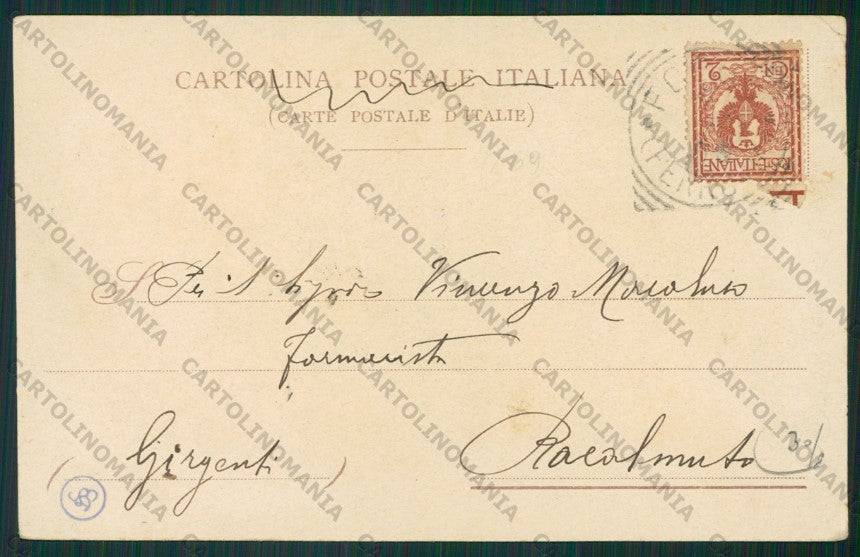 CARTOLINA POSTALE ITALIANA
(CARTE POSTALE D'ITALIE)
2 CEN 2
POSTE·ITALIANE
(FERR
Signor Vincenzo Macaluso
Farmacista
Racalmuto
(Girgenti)
CARTOLINOMANIA